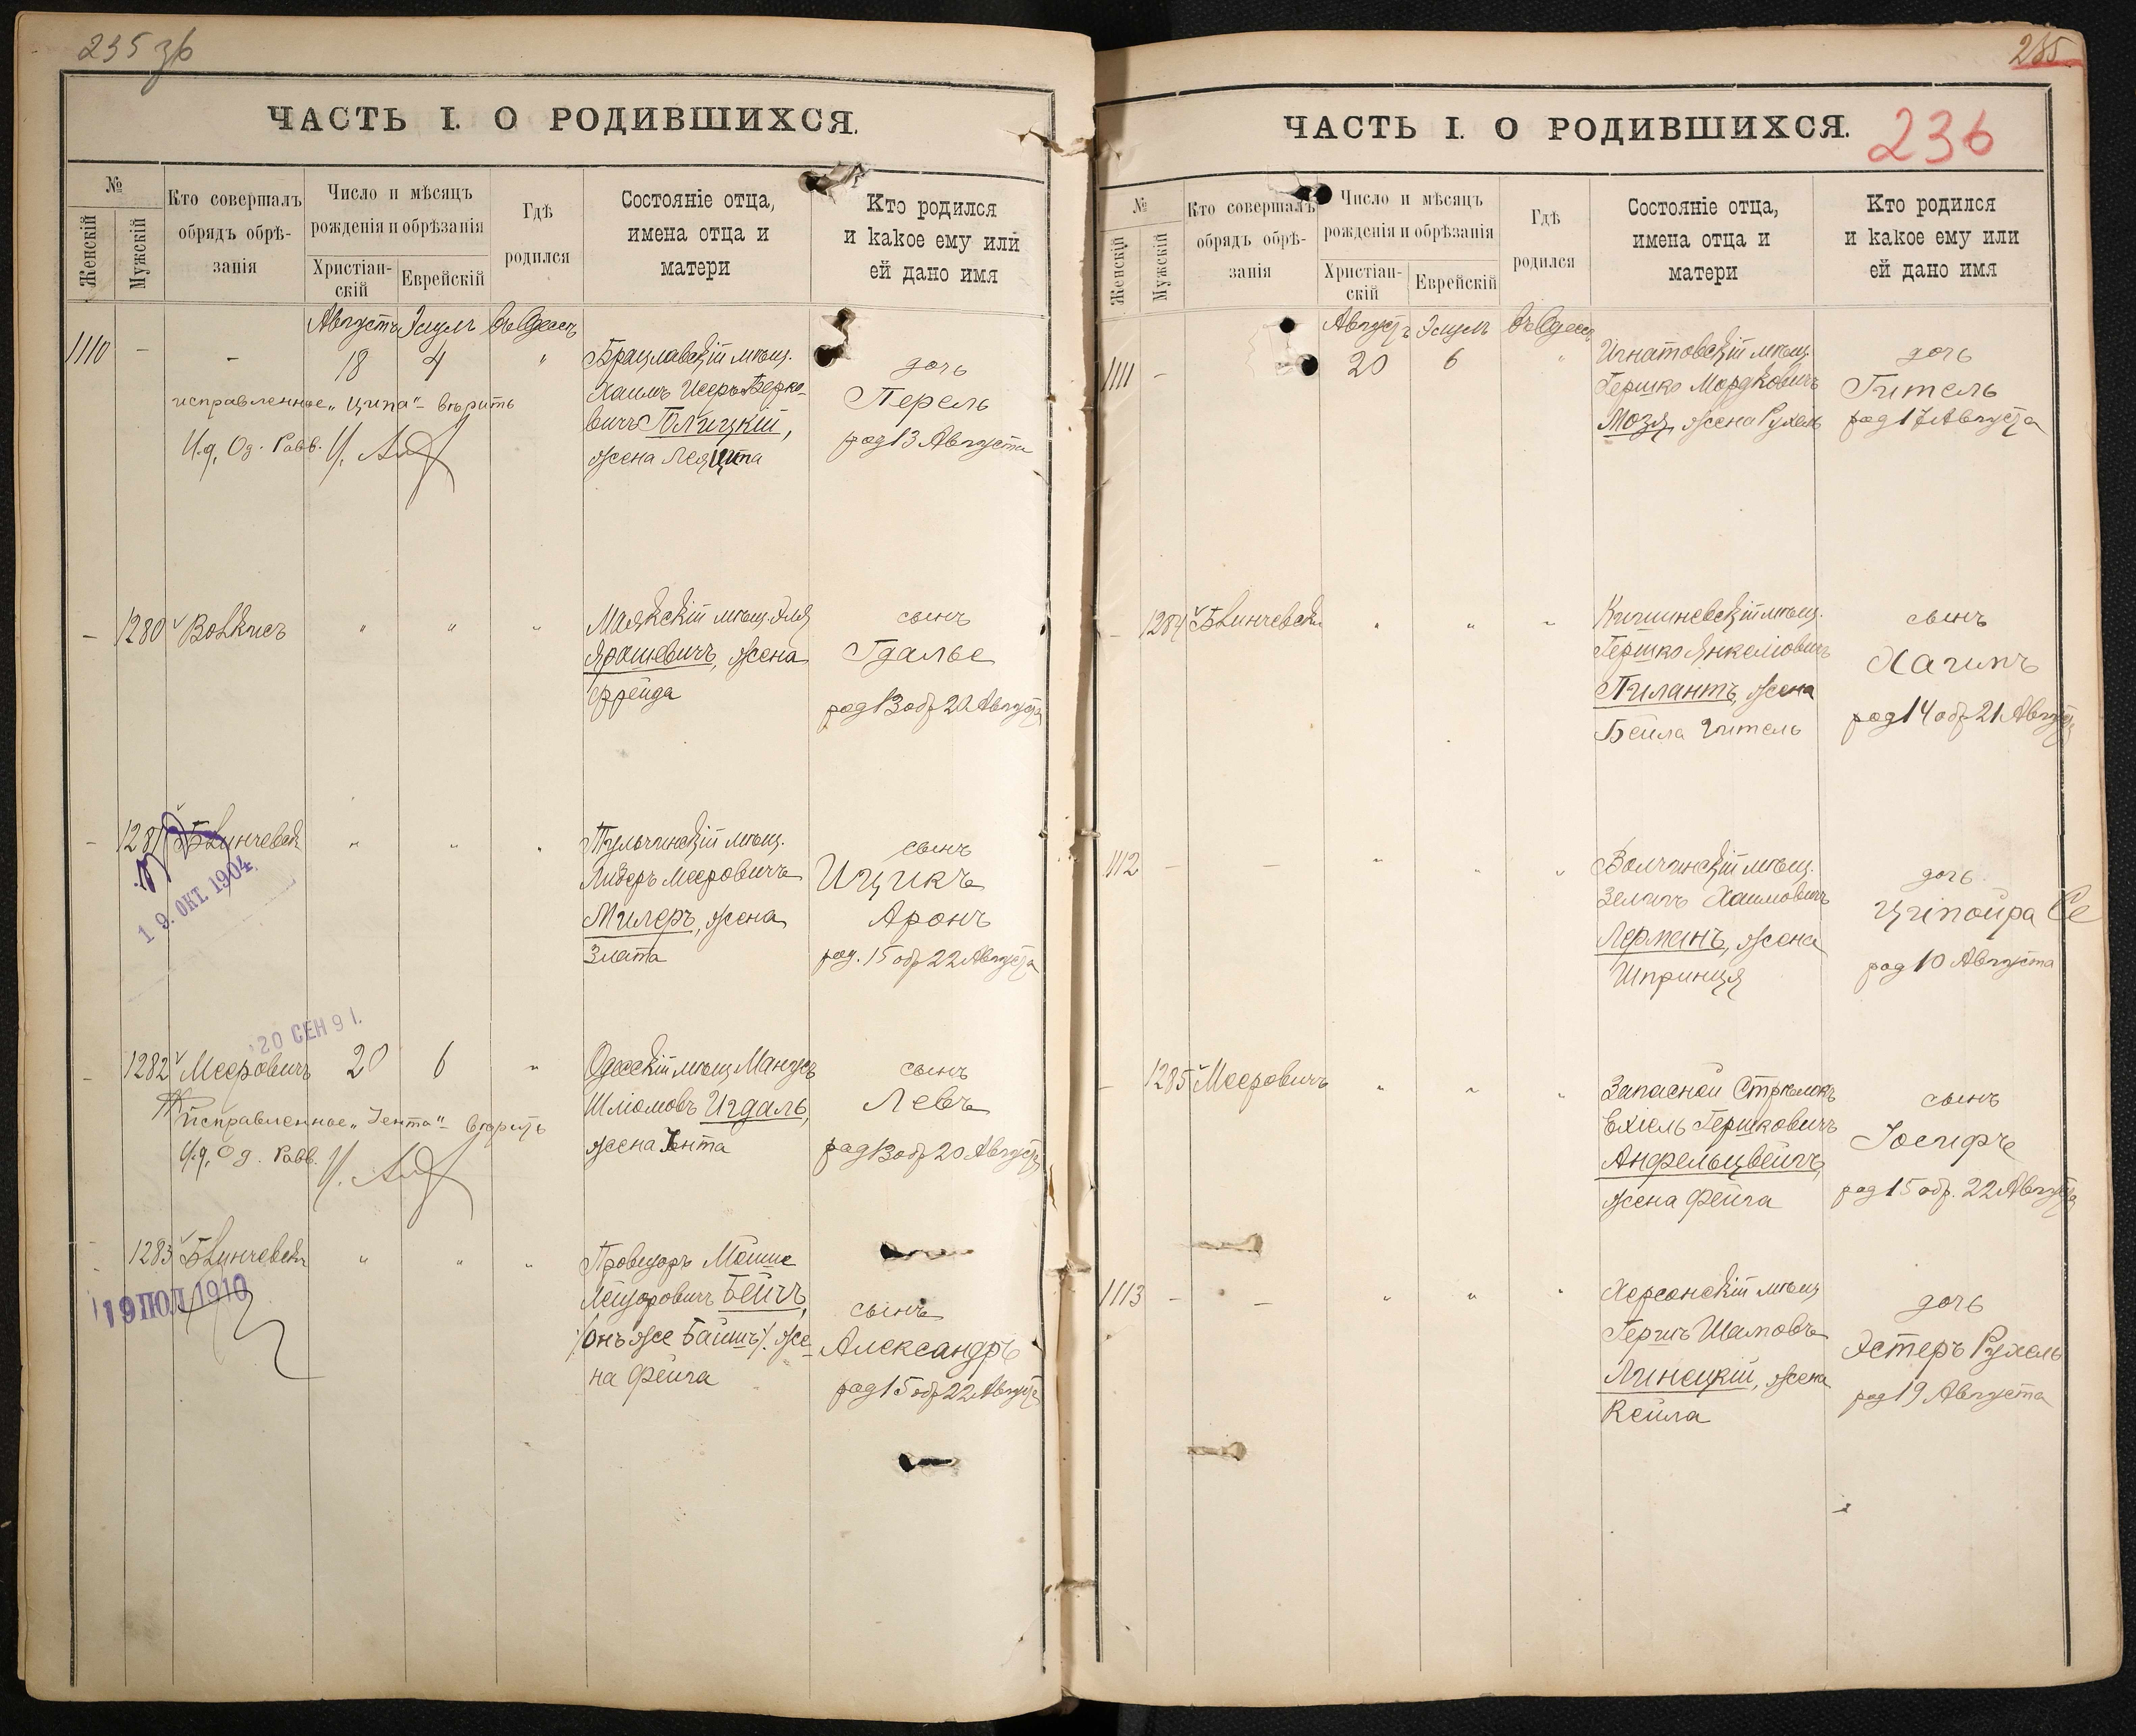 235 зв
ЧАСТЬ I. О РОДИВШИХСЯ.
№
Женскій
Мужскій
Кто совершалъ
обрядъ обрѣ-
занія
Число и мѣсяцъ
рожденія и обрѣзанія
Христіан-
скій
Еврейскій
Гдѣ
родился
Состояніе отца,
имена отца и
матери
Кто родился
и какое ему или
ей дано имя
Августъ Элулъ въ Одессѣ
1110 - - 18 4 "
Брацлавскій мѣщ.
Хаимъ Исеръ Берко-
вичъ Блицкій,
жена Лея Ципа
дочь
Перель
род 13 Августа
исправленное „Ципа“ - вѣрить
И.д. Од. Равв.
- 1280 Волкисъ " " "
Маякскій мѣщ. Эля
Ярошевичъ, жена
Фрейда
сынъ
Гдалье
род 13 обр 20 Августа
- 1281 Блинчевск " " "
19. ОКТ. 1904.
Тульчинскій мѣщ.
Лидеръ Мееровичъ
Милеръ, жена
Злата
сынъ
Ицикъ
Аронъ
род. 15 обр 22 Августа
20 СЕН 91.
- 1282 Мееровичъ 20 6 "
Одесскій мѣщ Мандусъ
Шліомовъ Игдаль,
жена Іента
сынъ
Левъ
род 13 обр 20 Августа
исправленное „Іента“ - вѣрить
И.д. Од. Равв.
1283 Блинчевск " " "
19 ІЮЛ 1910
Провизоръ Мошие
Лейзоровичъ Бейчъ,
/онъ же Баишъ/. же-
на Фейга
сынъ
Александръ
род 15 обр 22 Августа
235
ЧАСТЬ I. О РОДИВШИХСЯ.
236
№
Женскій
Мужскій
Кто совершалъ
обрядъ обрѣ-
занія
Число и мѣсяцъ
рожденія и обрѣзанія
Христіан-
скій
Еврейскій
Гдѣ
родился
Состояніе отца,
имена отца и
матери
Кто родился
и какое ему или
ей дано имя
Августъ Элулъ въ Одессѣ
1111 - 20 6 "
Игнатовскій мѣщ.
Гершко Мордковичъ
Мозя, жена Рухель
дочь
Гитель
род 17 Августа
- 1284 Блинчевск " " "
Кишиневскій мѣщ.
Гершко Янкеліовичъ
Пилантъ, жена
Бейла Гитель
сынъ
Хаимъ
род 14 обр 21 Августа
1112 - - " " "
Волчинскій мѣщ.
Зелигъ Хаимовичъ
Лерманъ, жена
Шпринця
дочь
Ціпойра Се
род 10 Августа
- 1285 Мееровичъ " " "
Запасной Стрѣлокъ
Ехіель Гершковичъ
Анфельцвейгъ,
жена Фейга
сынъ
Іосифъ
род 15 обр. 22 Августа
1113 - - " " "
Херсонскій мѣщ
Гершъ Шамовъ
Линецкій, жена
Кейла
дочь
Эстеръ Рухель
род 19 Августа